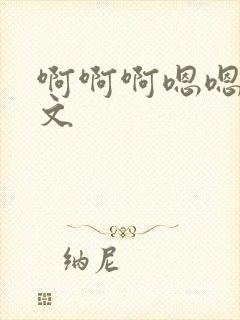 啊啊啊嗯嗯
文
纳尼